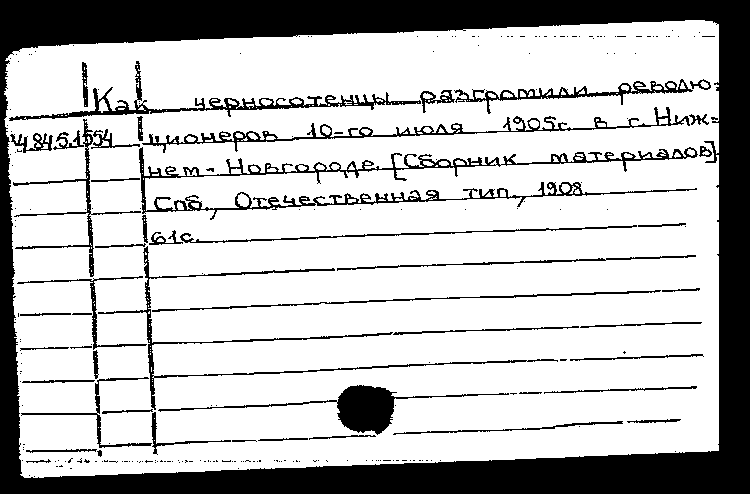 Как черносотенцы разгромили револю=
Ч84.5.1554 ционеров 10-го июля 1905г. в г. Ниж=
нем-Новгороде. [Сборник материалов].
Спб., Отечественная тип., 1908.
61с.